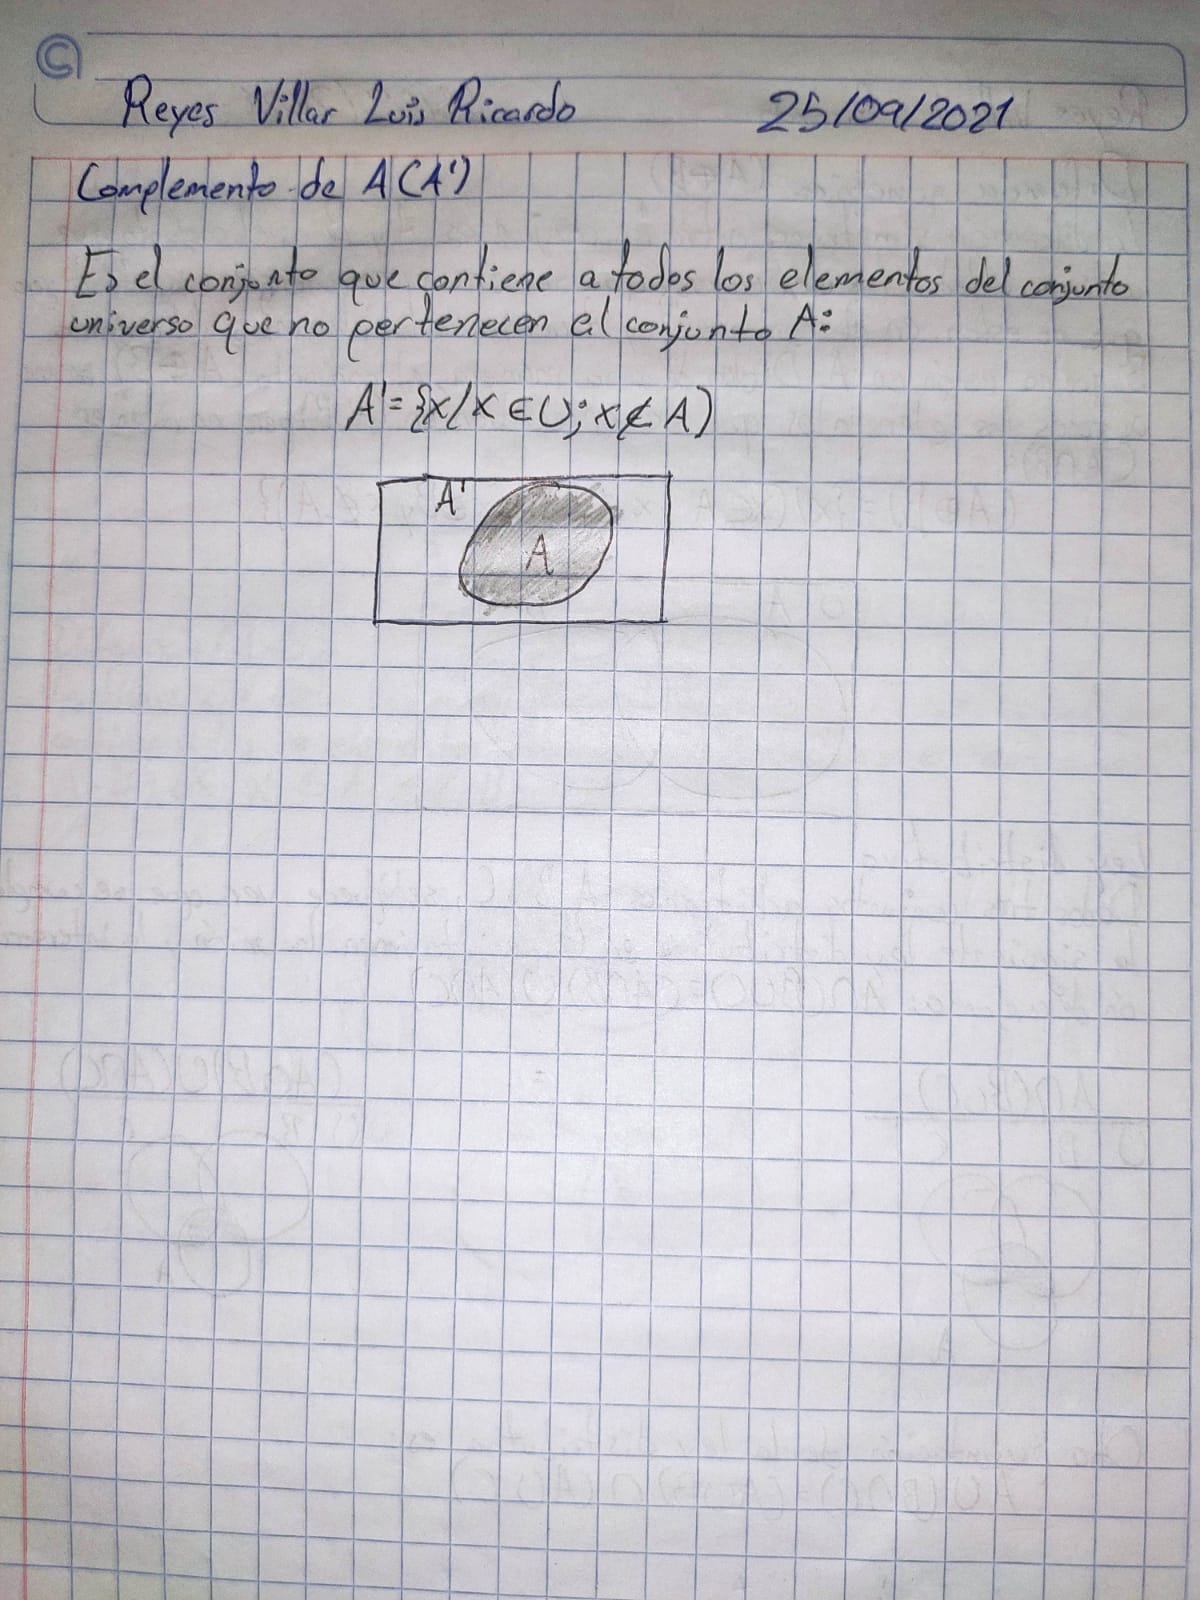 Reyes Villar Luis Ricardo 25/09/2021
Complemento de A(A')
Es el conjunto que contiene a todos los elementos del conjunto
universo que no pertenecen al conjunto A:
A'={x/x∈U; x∉A)
A'
A